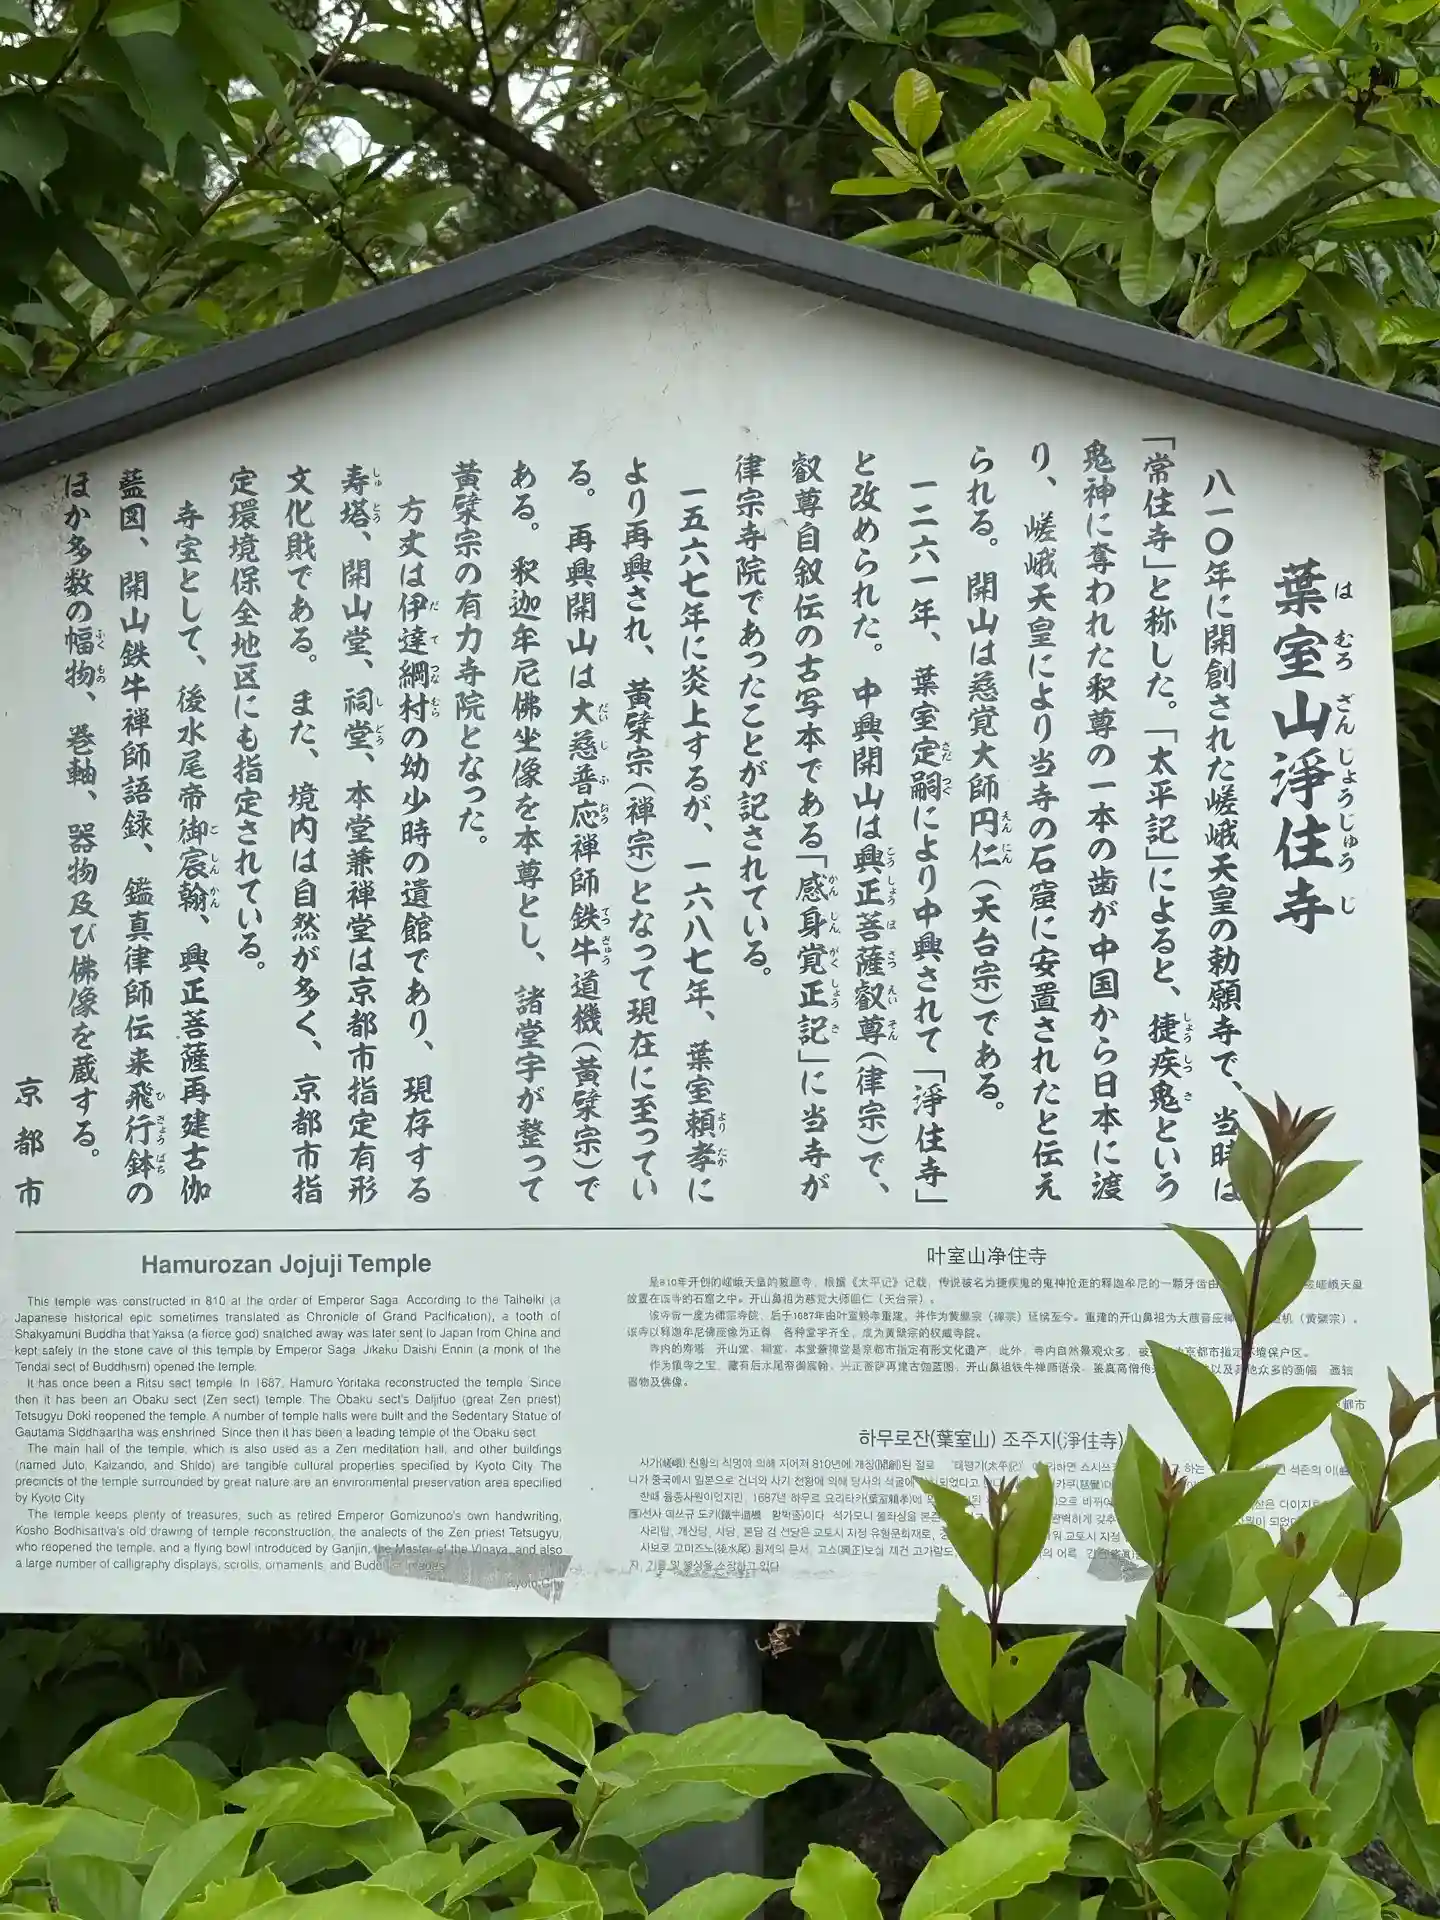 葉室山淨住寺
はむろざんじょうじゅうじ
八一〇年に開創された嵯峨天皇の勅願寺で、当時は
「常住寺」と称した。「太平記」によると、捷疾鬼という
しょうしつき
鬼神に奪われた釈尊の一本の歯が中国から日本に渡
り、嵯峨天皇により当寺の石窟に安置されたと伝え
られる。開山は慈覚大師円仁(天台宗)である。
えんにん
一二六一年、葉室定嗣により中興されて「淨住寺」
さだつぐ
と改められた。中興開山は興正菩薩叡尊(律宗)で、
こうしょうぼさつえいそん
叡尊自叙伝の古写本である「感身覚正記」に当寺が
かんしんがくしょうき
律宗寺院であったことが記されている。
一五六七年に炎上するが、一六八七年、葉室頼孝に
よりたか
より再興され、黄檗宗(禅宗)となって現在に至ってい
る。再興開山は大慈普応禅師鉄牛道機(黄檗宗)で
だいじふおう
てつぎゅう
ある。釈迦牟尼佛坐像を本尊とし、諸堂宇が整って
黄檗宗の有力寺院となった。
方丈は伊達綱村の幼少時の遺館であり、現存する
だてつなむら
寿塔、開山堂、祠堂、本堂兼禅堂は京都市指定有形
しゅとう
しどう
文化財である。また、境内は自然が多く、京都市指
定環境保全地区にも指定されている。
寺宝として、後水尾帝御宸翰、興正菩薩再建古伽
ごしんかん
藍図、開山鉄牛禅師語録、鑑真律師伝来飛行鉢の
ひぎょうばち
ほか多数の幅物、巻軸、器物及び佛像を蔵する。
ふくもの
京都市
Hamurozan Jojuji Temple
This temple was constructed in 810 at the order of Emperor Saga. According to the Taiheiki (a
Japanese historical epic sometimes translated as Chronicle of Grand Pacification), a tooth of
Shakyamuni Buddha that Yaksa (a fierce god) snatched away was later sent to Japan from China and
kept safely in the stone cave of this temple by Emperor Saga. Jikaku Daishi Ennin (a monk of the
Tendai sect of Buddhism) opened the temple.
It has once been a Ritsu sect temple. In 1687, Hamuro Yoritaka reconstructed the temple. Since
then it has been an Obaku sect (Zen sect) temple. The Obaku sect's Daijifuo (great Zen priest)
Tetsugyu Doki reopened the temple. A number of temple halls were built and the Sedentary Statue of
Gautama Siddhaartha was enshrined. Since then it has been a leading temple of the Obaku sect.
The main hall of the temple, which is also used as a Zen meditation hall, and other buildings
(named Juto, Kaizando, and Shido) are tangible cultural properties specified by Kyoto City. The
precincts of the temple surrounded by great nature are an environmental preservation area specified
by Kyoto City.
The temple keeps plenty of treasures, such as retired Emperor Gomizunoo's own handwriting,
Kosho Bodhisattva's old drawing of temple reconstruction, the analects of the Zen priest Tetsugyu,
who reopened the temple, and a flying bowl introduced by Ganjin, the Master of the Vinaya, and also
a large number of calligraphy displays, scrolls, ornaments, and Buddhist images.
Kyoto City
叶室山净住寺
是810年开创的嵯峨天皇的敕愿寺，根据《太平记》记载，传说被名为捷疾鬼的鬼神抢走的释迦牟尼的一颗牙齿由 嵯峨天皇
放置在该寺的石窟之中。开山鼻祖为慈觉大师圆仁（天台宗）。
该寺曾一度为律宗寺院，后于1687年由叶室赖孝重建，并作为黄檗宗（禅宗）延续至今。重建的开山鼻祖为大慈普应禅 机（黄檗宗）。
该寺以释迦牟尼佛座像为正尊，各种堂宇齐全，成为黄檗宗的权威寺院。
寺内的寿塔、开山堂、祠堂、本堂兼禅堂是京都市指定有形文化遗产，此外，寺内自然景观众多，被 京都市指定环境保护区。
作为镇寺之宝，藏有后水尾帝御宸翰、兴正菩萨再建古伽蓝图、开山鼻祖铁牛禅师语录、鉴真高僧传 以及其他众多的画幅、画轴、
器物及佛像。
都市
하무로잔(葉室山) 조주지(淨住寺)
사가(嵯峨) 천황의 칙명에 의해 지어져 810년에 개창(開創)된 절로, '태평기(太平記)' 하는
니가 중국에서 일본으로 건너와 사가 천황에 의해 당사의 석굴에
한때 율종사원이었지만, 1687년 하무로 요리타카(葉室頼孝)에
선사 데쓰규 도키(鐵牛道機, 황벽종)이다. 석가모니 불좌상을 본존
사리탑, 개산당, 사당, 본당 겸 선당은 교토시 지정 유형문화재로,
사보로 고미즈노(後水尾) 황제의 문서, 고쇼(興正)보살 재건 고가람도, 의 어록,
자, 기물 및 불상을 소장하고 있다.